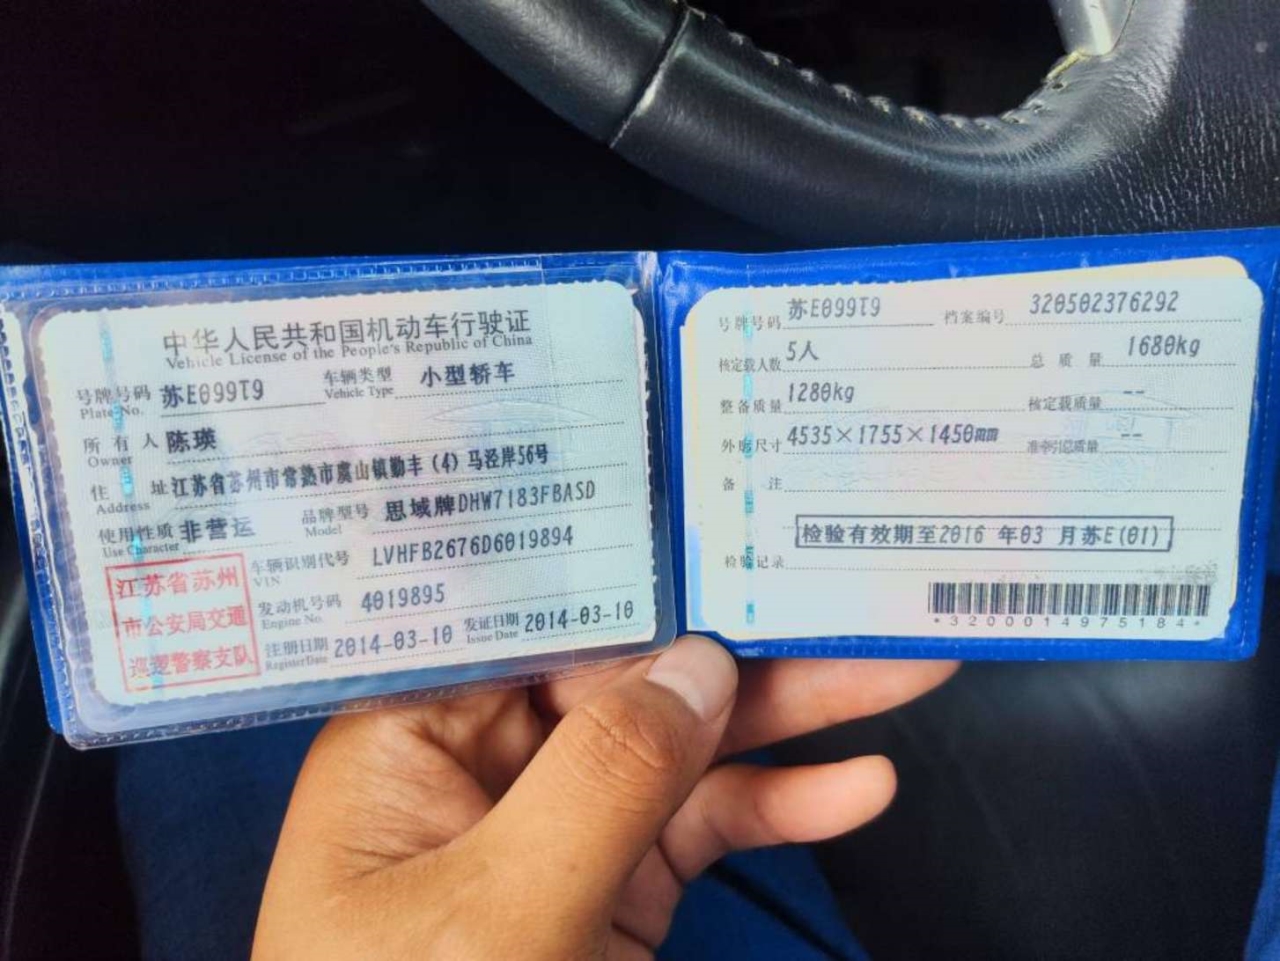 中华人民共和国机动车行驶证
Vehicle License of the People's Republic of China
号牌号码 苏E099T9 车辆类型 小型轿车
Plate No. Vehicle Type
所有人 陈瑛
Owner
住址 江苏省苏州市常熟市虞山镇勤丰(4)马泾岸56号
Address
使用性质 非营运 品牌型号 思域牌DHW7183FBASD
Use Character Model
车辆识别代号 LVHFB2676D6019894
VIN
发动机号码 4019895
Engine No.
注册日期 2014-03-10 发证日期 2014-03-10
Register Date Issue Date
江苏省苏州
市公安局交通
巡逻警察支队
号牌号码 苏E099T9 档案编号 320502376292
核定载人数 5人 总质量 1680kg
整备质量 1280kg 核定载质量 --
外廓尺寸 4535×1755×1450mm 准牵引总质量 --
备注
检验有效期至2016 年03 月苏E(01)
检验记录
*3200014975184*